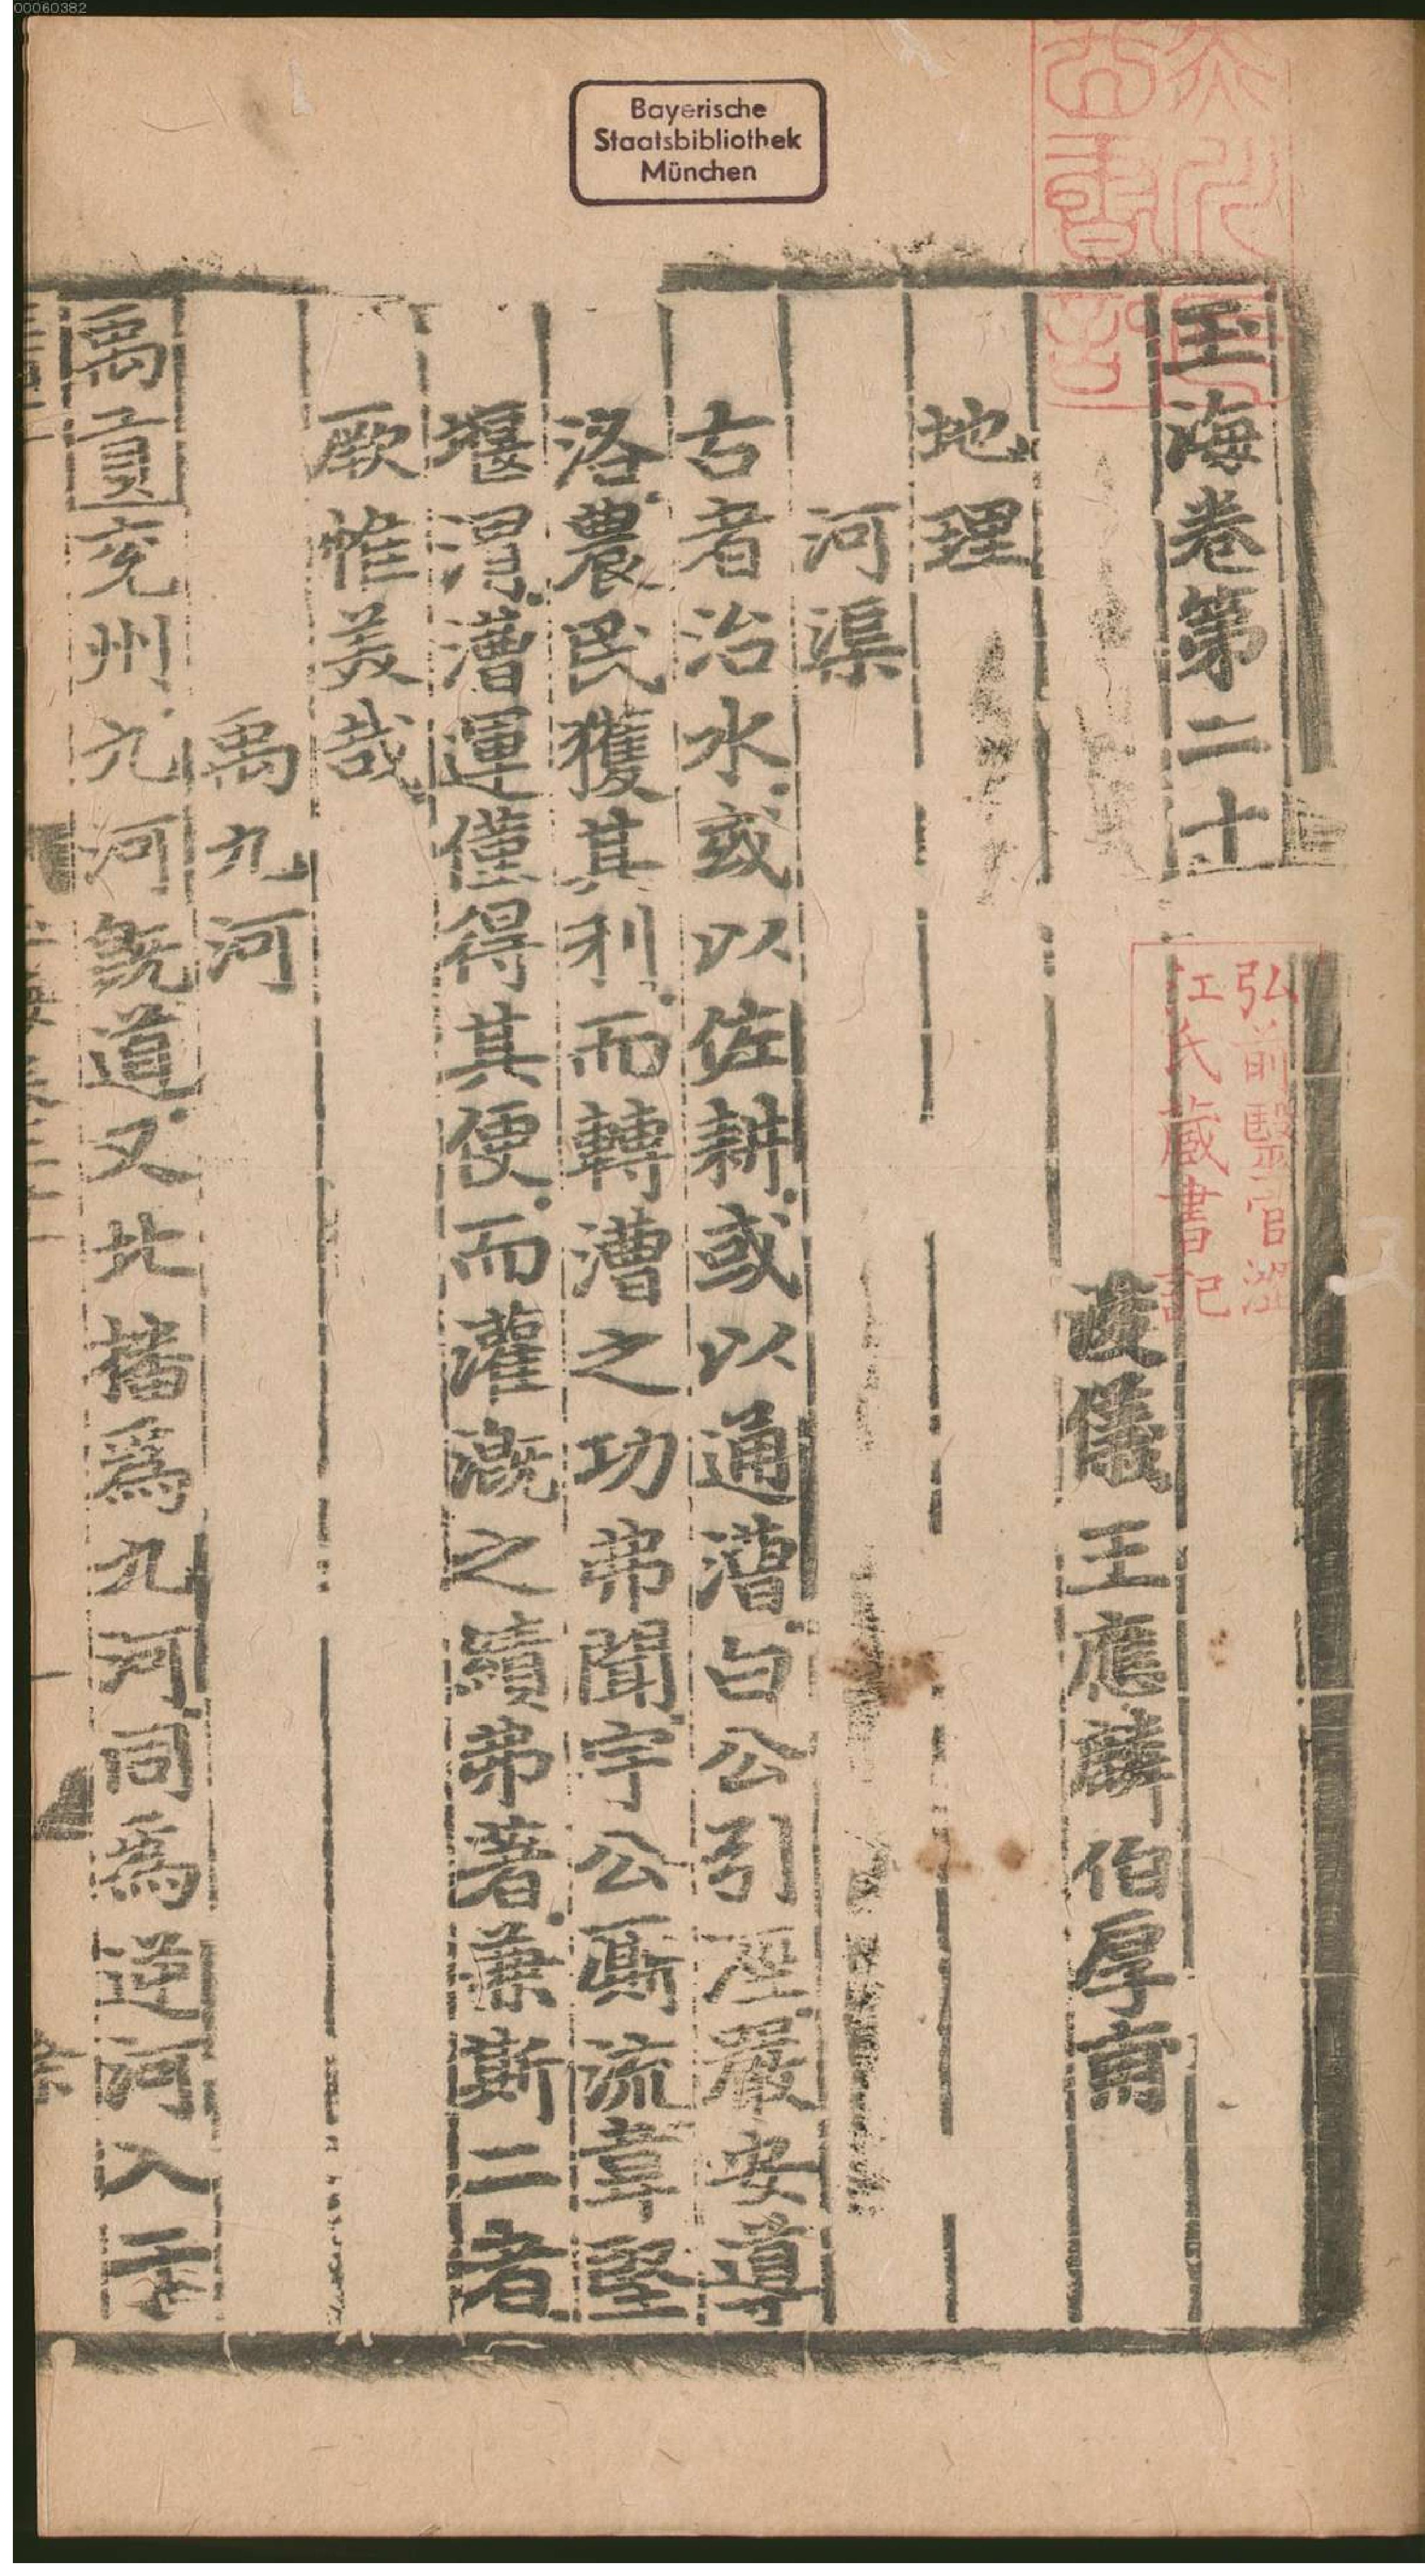 00060382
Bayerische
Staatsbibliothek
München
弘前醫官澀
江氏蔵書記
玉海卷第二十
浚儀王應麟伯厚甫
地理
河渠
古者治水或以佐耕或以通漕白公引涇嚴安導
洛農民獲其利而轉漕之功弗聞宇公厮流韋堅
堰渭漕運僅得其便而灌漑之績弗著兼斯二者
厥惟美哉
禹九河
禹貢兖州九河旣道又北播爲九河同爲逆河入于